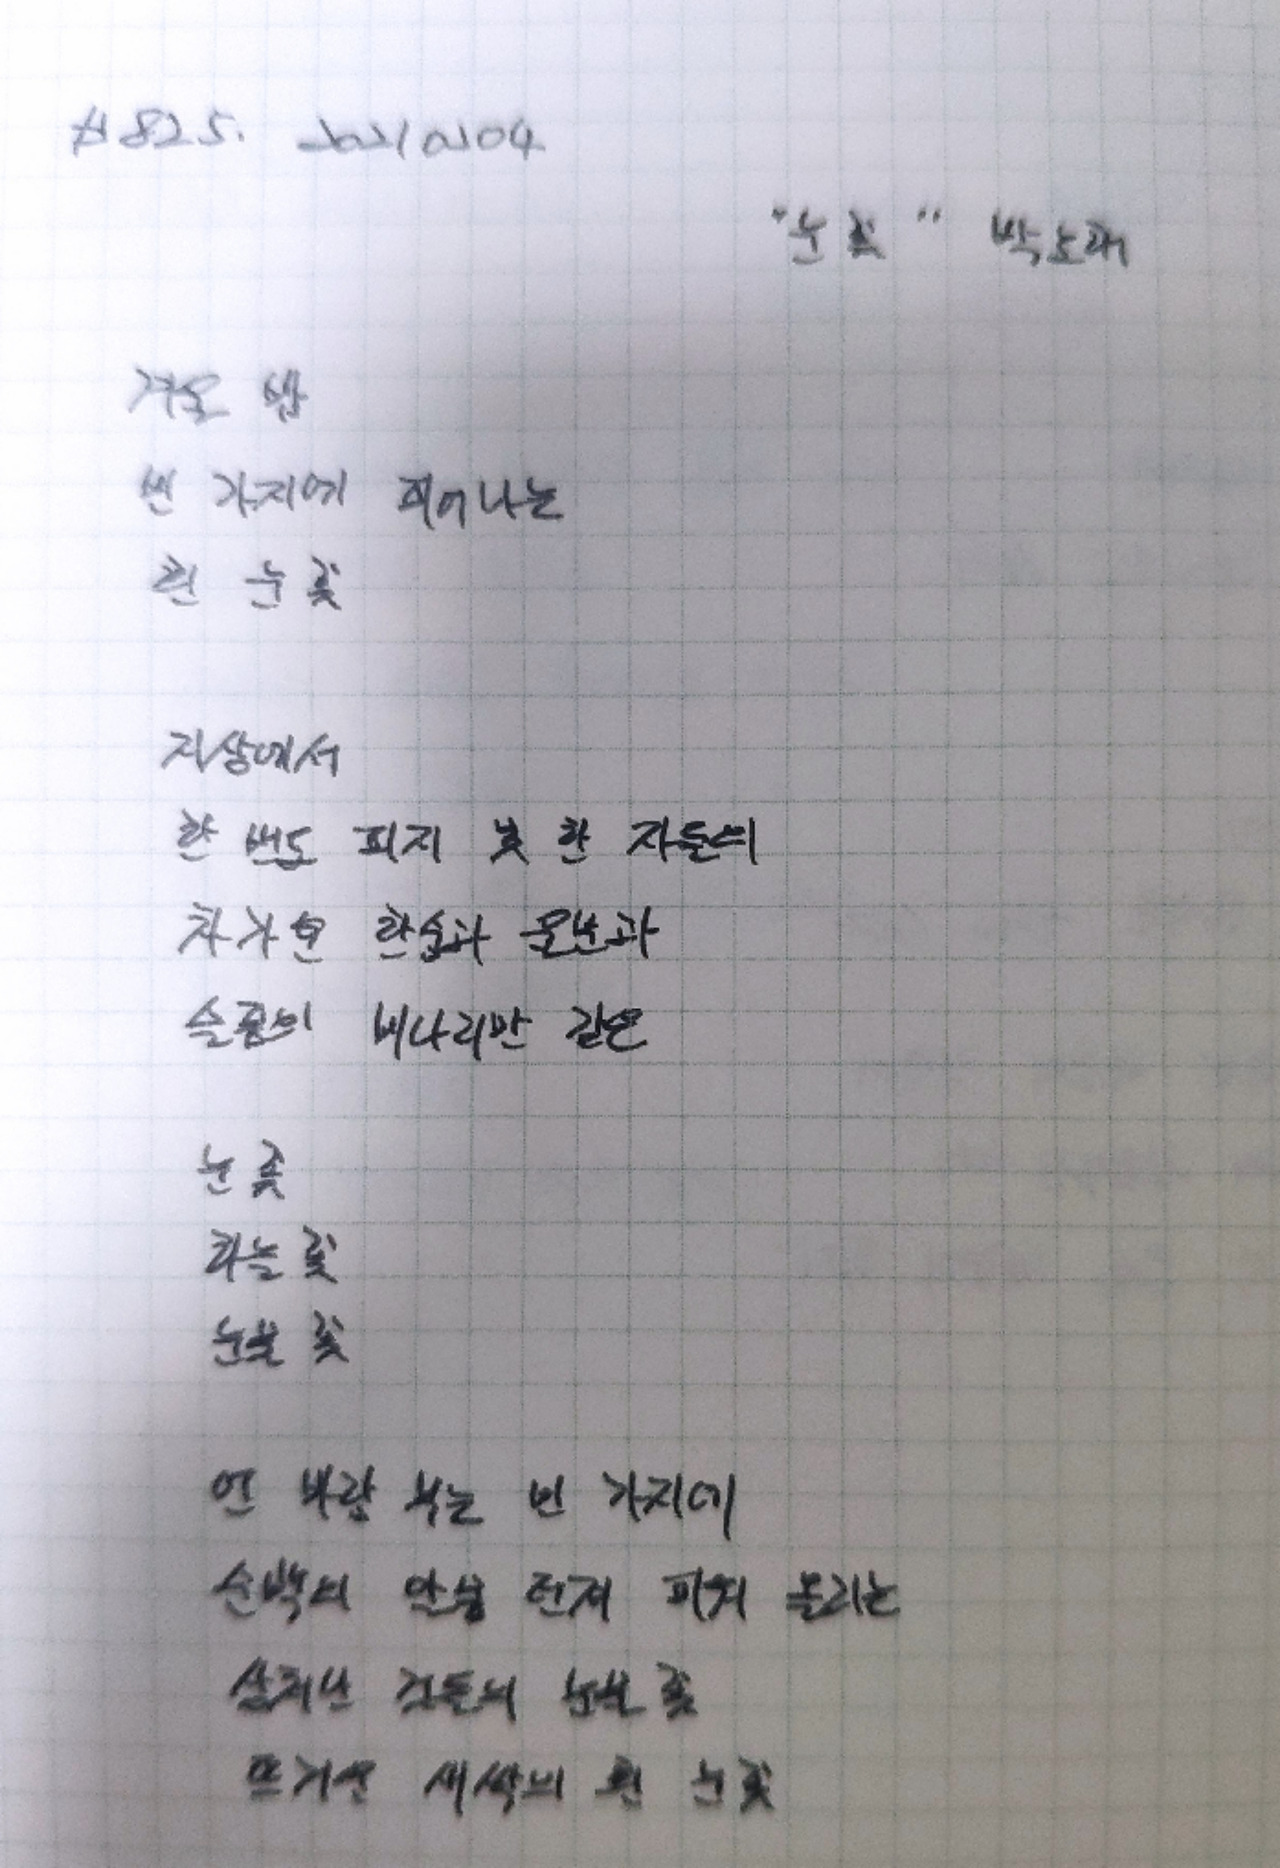 #825. 20210204
"눈꽃" 박노해
겨울 밤
빈 가지에 피어나는
흰 눈꽃
지상에서
한 번도 피지 못 한 자들의
차가운 한숨과 울분과
슬픔의 비나리만 같은
눈꽃
하늘꽃
눈물꽃
언 바람 부는 빈 가지에
순백의 안쓰럼 던져 피워 올리는
살처난 것들의 눈물꽃
뜨거운 새싹의 흰 눈꽃